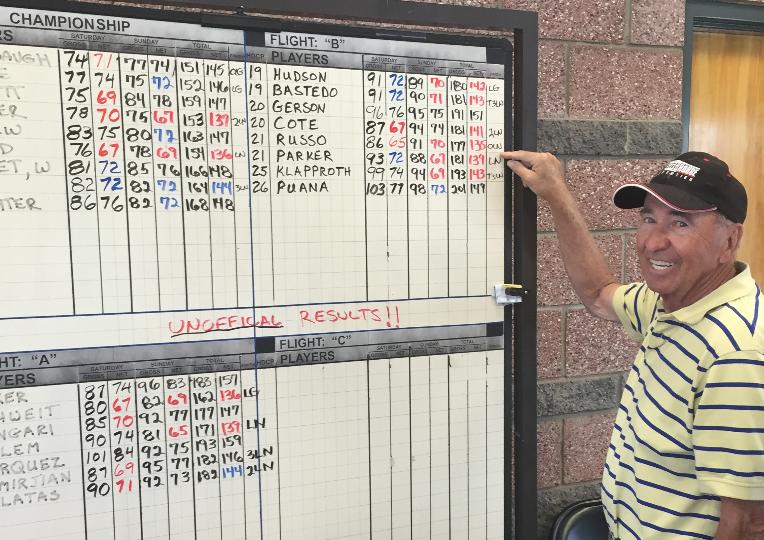 CHAMPIONSHIP FLIGHT: "B"
ERS SATURDAY SUNDAY TOTAL HDCP PLAYERS SATURDAY SUNDAY TOTAL
GROSS NET GROSS NET GROSS NET GROSS NET GROSS NET GROSS NET
AUGH 74 71 77 74 151 145 OG 19 HUDSON 91 72 89 70 180 142 LG
E 77 74 75 72 152 146 LG 19 BASTEDO 91 72 90 71 181 143 T3LN
TT 75 69 84 78 159 147 20 GERSON 96 76 95 75 191 151
ER 78 70 75 67 153 137 2LN 20 COTE 87 67 94 74 181 141 2LN
W 83 75 80 72 163 147 21 RUSSO 86 65 91 70 177 135 OLN
D 76 67 78 69 154 136 LN 21 PARKER 93 72 88 67 181 139 LN
ET, W 81 72 85 76 166 148 25 KLAPPROTH 99 74 94 69 193 143 T3LN
82 72 82 72 164 144 3LN 26 PUANA 103 77 98 72 201 149
TER 86 76 82 72 168 148
UNOFFICAL RESULTS!!
HT: "A" FLIGHT: "C"
YERS SATURDAY SUNDAY TOTAL HDCP PLAYERS SATURDAY SUNDAY TOTAL
GROSS NET GROSS NET GROSS NET GROSS NET GROSS NET GROSS NET
KER 87 74 96 83 183 157
HWEIT 80 67 82 69 162 136 LG
NGARI 85 70 92 77 177 147
LEM 90 74 81 65 171 139 LN
RQUEZ 101 84 92 75 193 159
MIRJIAN 87 69 95 77 182 146 3LN
LATAS 90 71 92 73 182 144 2LN